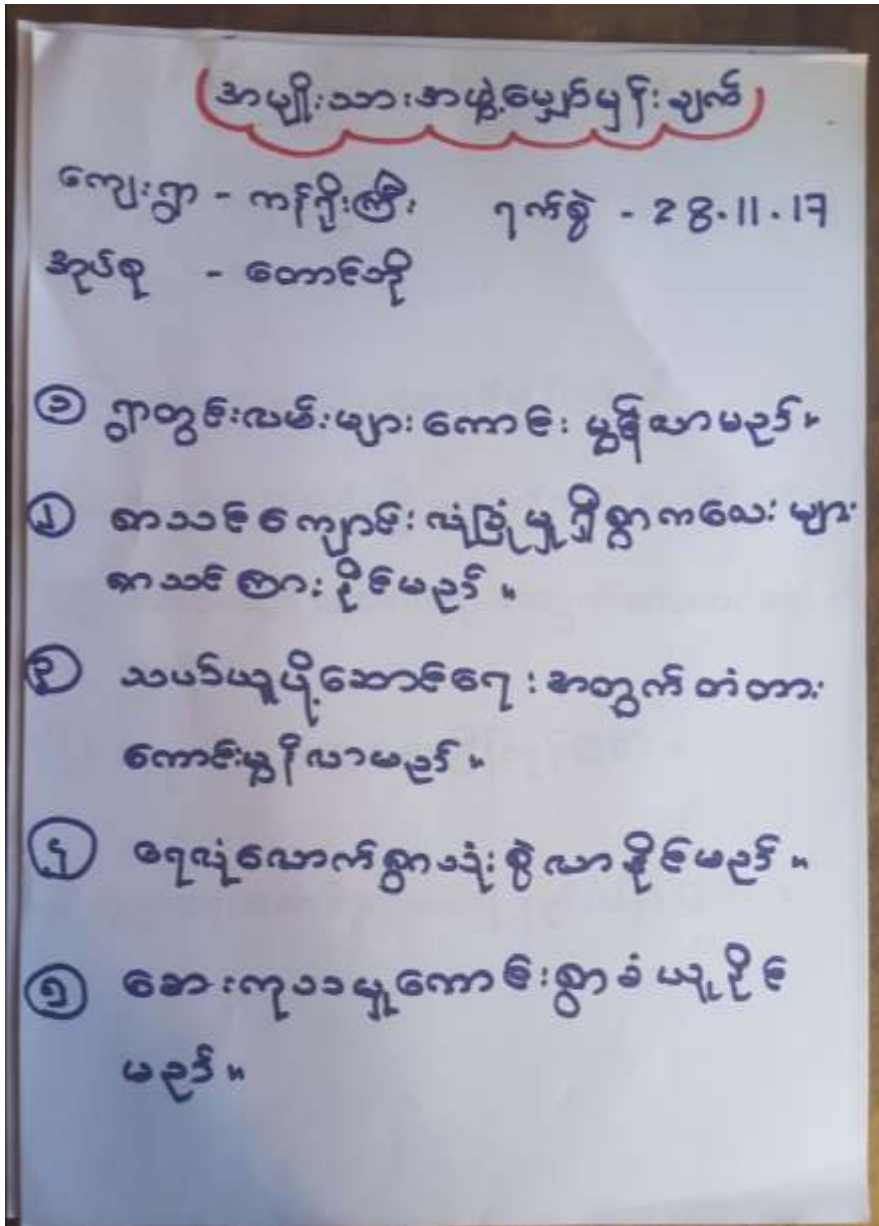 အမျိုးသားအဖွဲ့မျှော်မှန်းချက်
ကျေးရွာ - ကန်ရိုးကြီး ရက်စွဲ - 28.11.17
အုပ်စု - တောင်ဘို
၁ ရွာတွင်းလမ်းများကောင်းမွန်လာမည်။
၂ စာသင်ကျောင်းလုံခြုံမှုရှိစွာကလေးများ
စာသင်ကြားနိုင်မည်။
၃ သယ်ယူပို့ဆောင်ရေးအတွက်တံတား
ကောင်းမွန်လာမည်။
၄ ရေလုံလောက်စွာသုံးစွဲလာနိုင်မည်။
၅ ဆေးကုသမှုကောင်းစွာခံယူနိုင်
မည်။